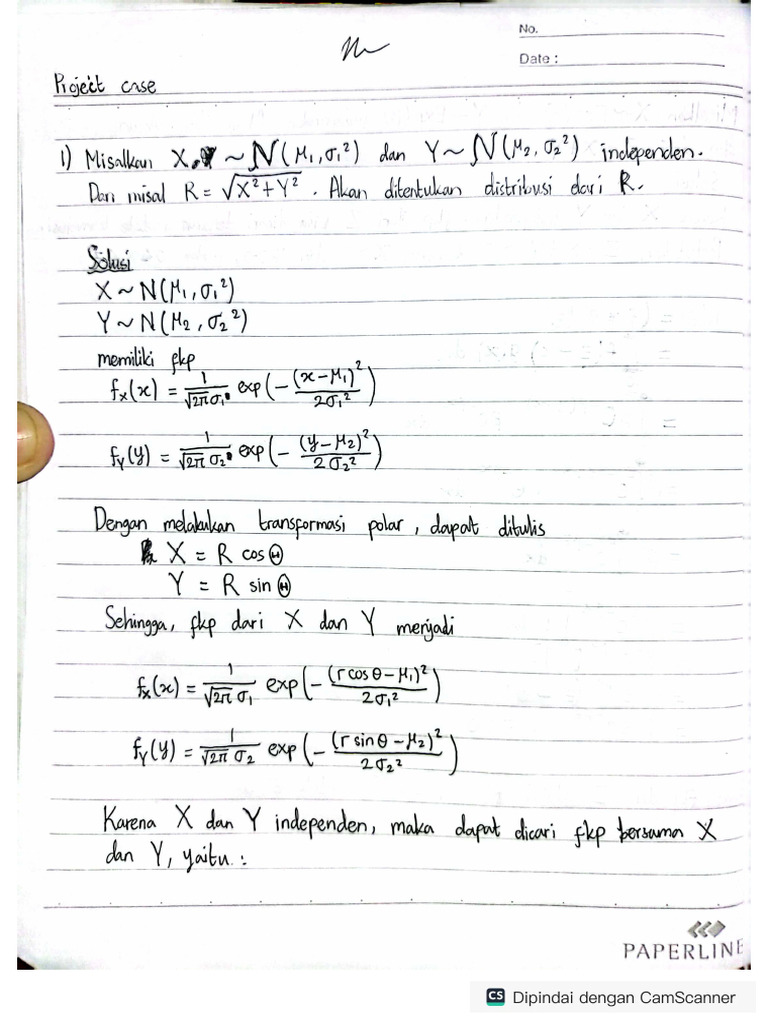 No.
Date :
Project case
1) Misalkan X ~ N(μ₁, σ₁²) dan Y ~ N(μ₂, σ₂²) independen.
Dan misal R = √(X² + Y²) . Akan ditentukan distribusi dari R.
Solusi
X ~ N(μ₁, σ₁²)
Y ~ N(μ₂, σ₂²)
memiliki fkp
fₓ(x) = 1/(√2π σ₁) exp(− (x − μ₁)²/(2σ₁²))
f_Y(y) = 1/(√2π σ₂) exp(− (y − μ₂)²/(2σ₂²))
Dengan melakukan transformasi polar, dapat ditulis
X = R cos Θ
Y = R sin Θ
Sehingga, fkp dari X dan Y menjadi
fₓ(x) = 1/(√2π σ₁) exp(− (r cos θ − μ₁)²/(2σ₁²))
f_Y(y) = 1/(√2π σ₂) exp(− (r sin θ − μ₂)²/(2σ₂²))
Karena X dan Y independen, maka dapat dicari fkp bersama X
dan Y, yaitu :
PAPERLINE
CS Dipindai dengan CamScanner